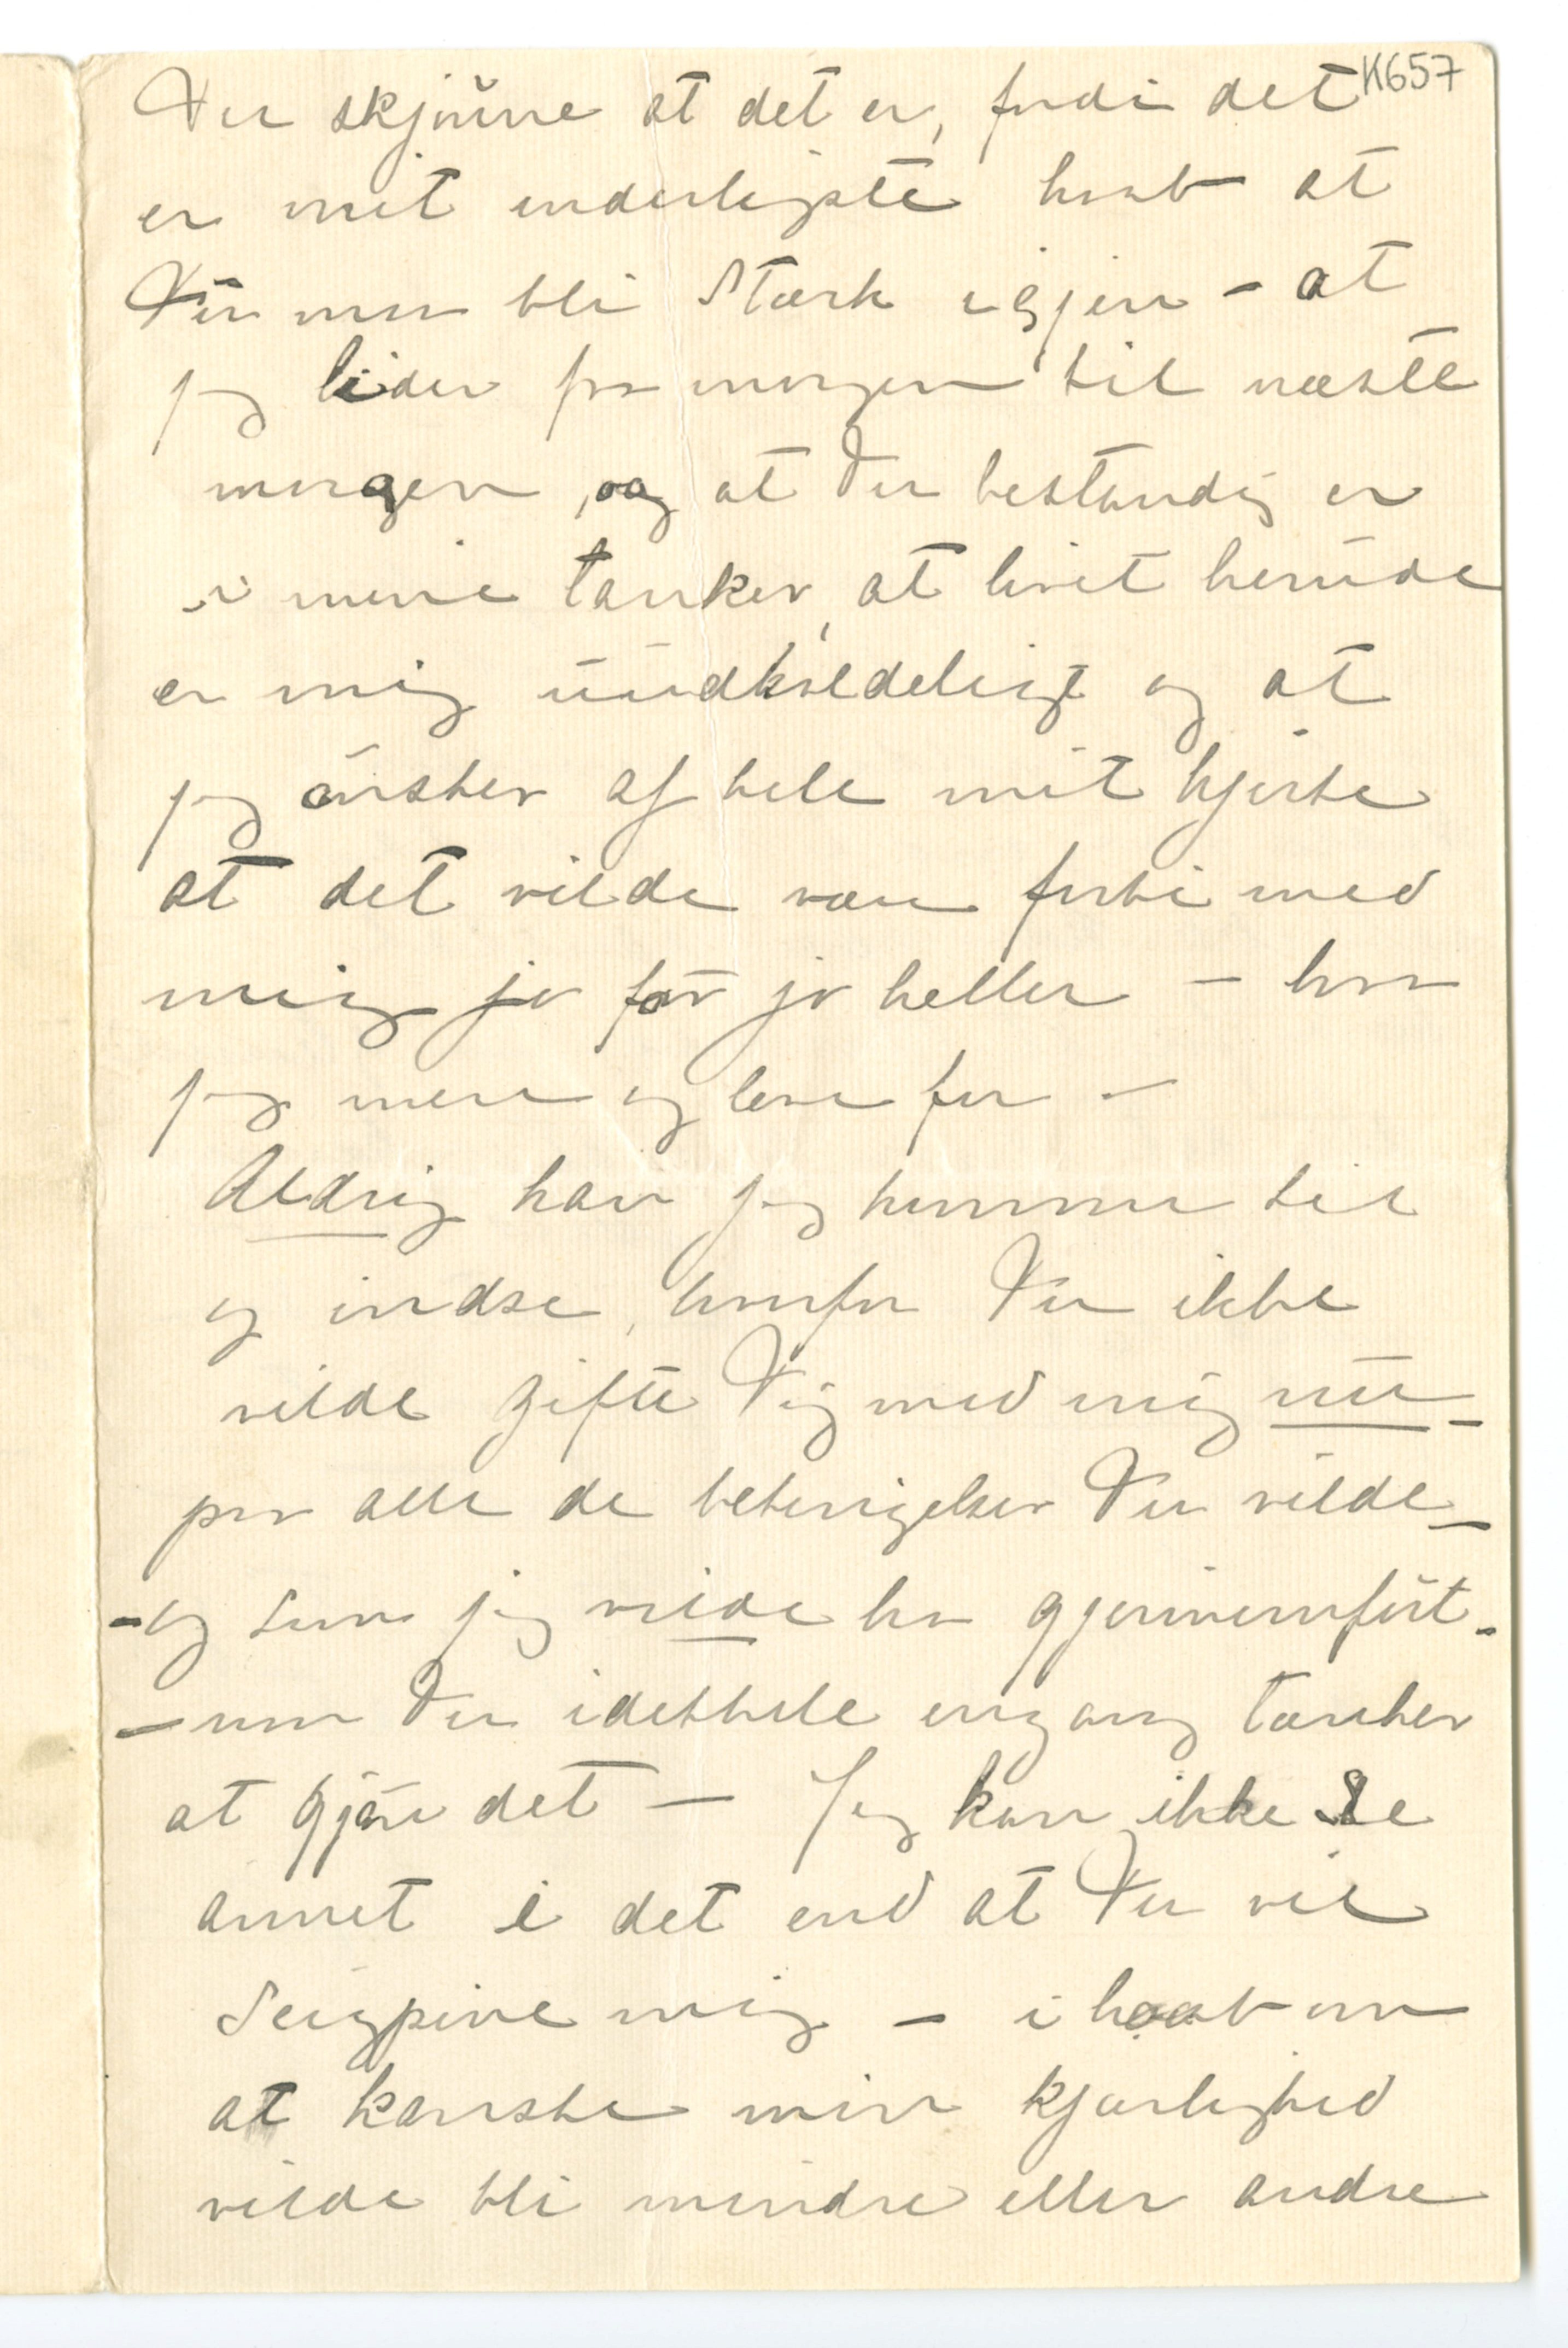 K657
Du skjønne at det er, fordi det
er mit inderligste haab at
Du maa bli stærk igjen – at
jeg lider fra morgen til næste
morgen, og at Du bestandig er
i mine tanker, at livet herude
er mig uudholdeligt og at
jeg ønsker af hele mit hjerte
at det vilde være forbi med
mig jo før jo heller – hva
jeg mere og leve for –
Aldrig har jeg kunnu til
og indse, hvorfor Du ikke
vilde gifte Dig med mig nu –
paa alle de betingelser Du vilde –
– og som jeg vilde ha gjennemført –
– naar Du idethele engang tænker
at gjøre det – Jeg kan ikke se
annet i det end at Du vil
seigpine mig – i haab om
at kanske min kjærlighed
vilde bli mindre eller andre